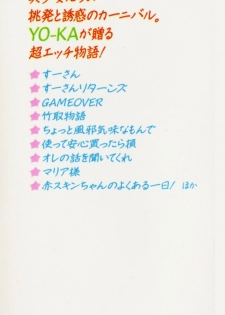 挑発と誘惑のカーニバル。
YO-KAが贈る
超エッチ物語!
すーさん
すーさんリターンズ
GAMEOVER
竹取物語
ちょっと風邪気味なもんで
使って安心買ったら損
オレの話を聞いてくれ
マリア様
赤スキンちゃんのよくある一日! ほか